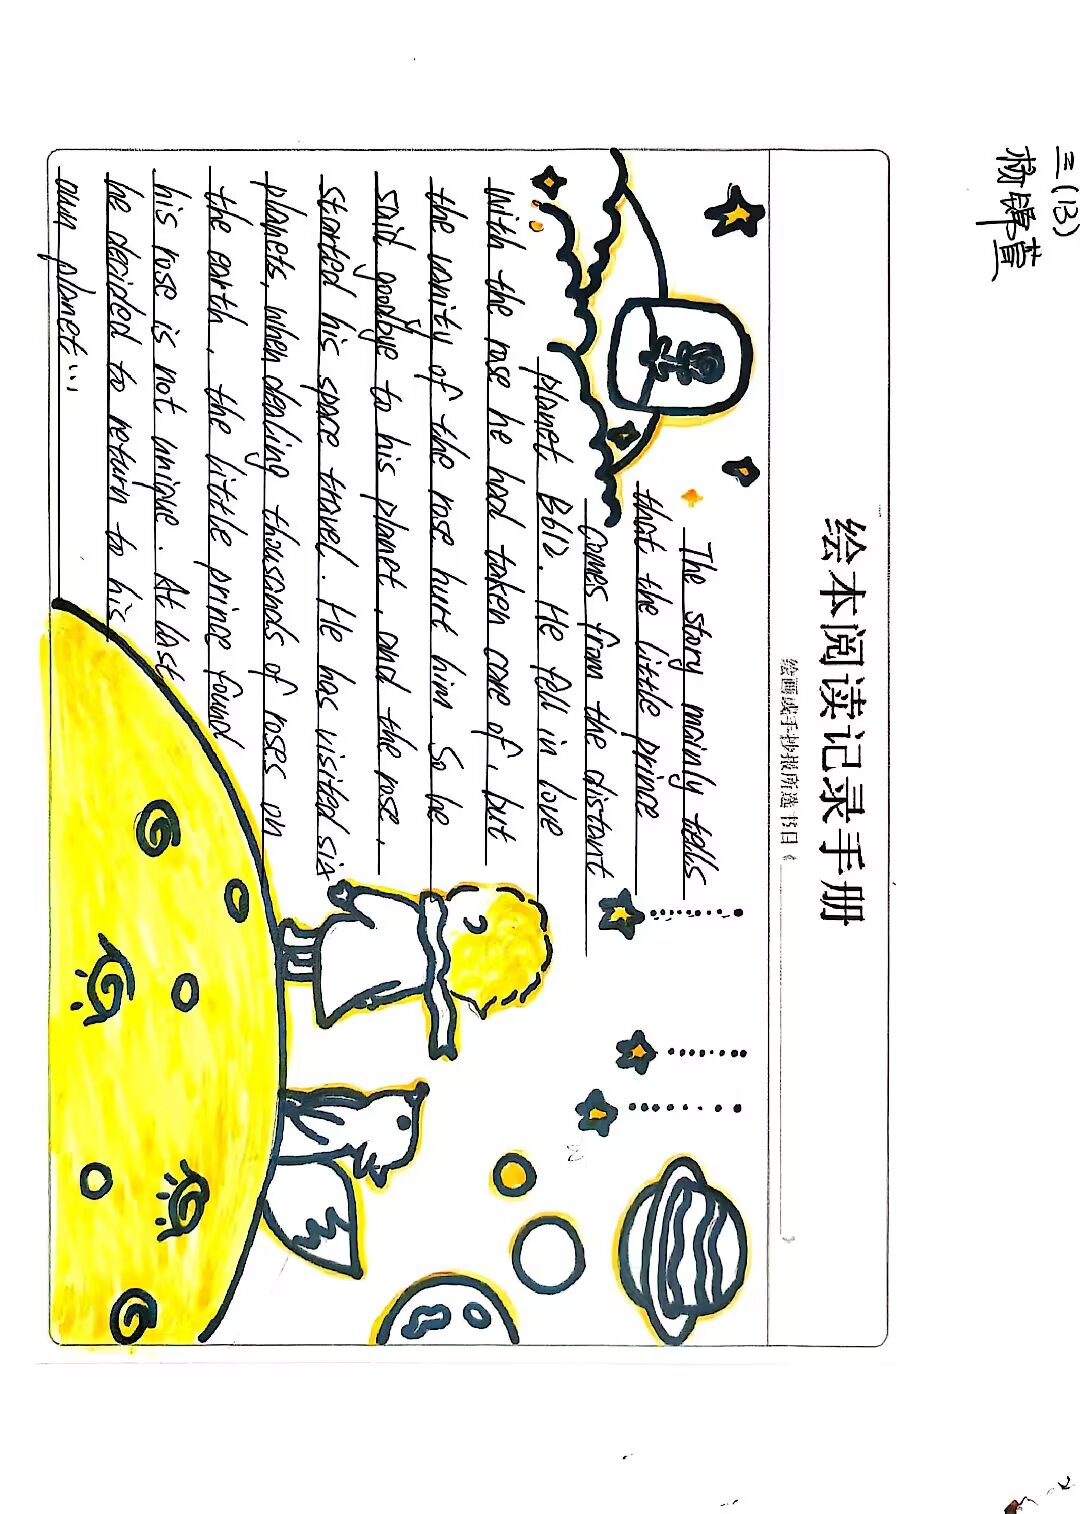 三(13)
杨锦萱
绘本阅读记录手册
绘画或手抄报所选书目《 》
The story mainly tells
that the little prince
comes from the distant
planet B612. He fell in love
with the rose he had taken care of, but
the vanity of the rose hurt him. So he
said goodbye to his planet, and the rose,
started his space travel. He has visited six
planets, when dealing thousands of roses on
the earth, the little prince found
his rose is not unique. At last
he decided to return to his
own planet...